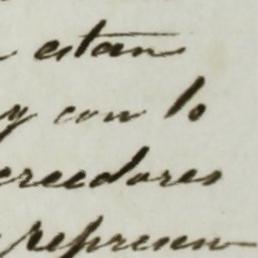 estan
y con lo
creedores
represen